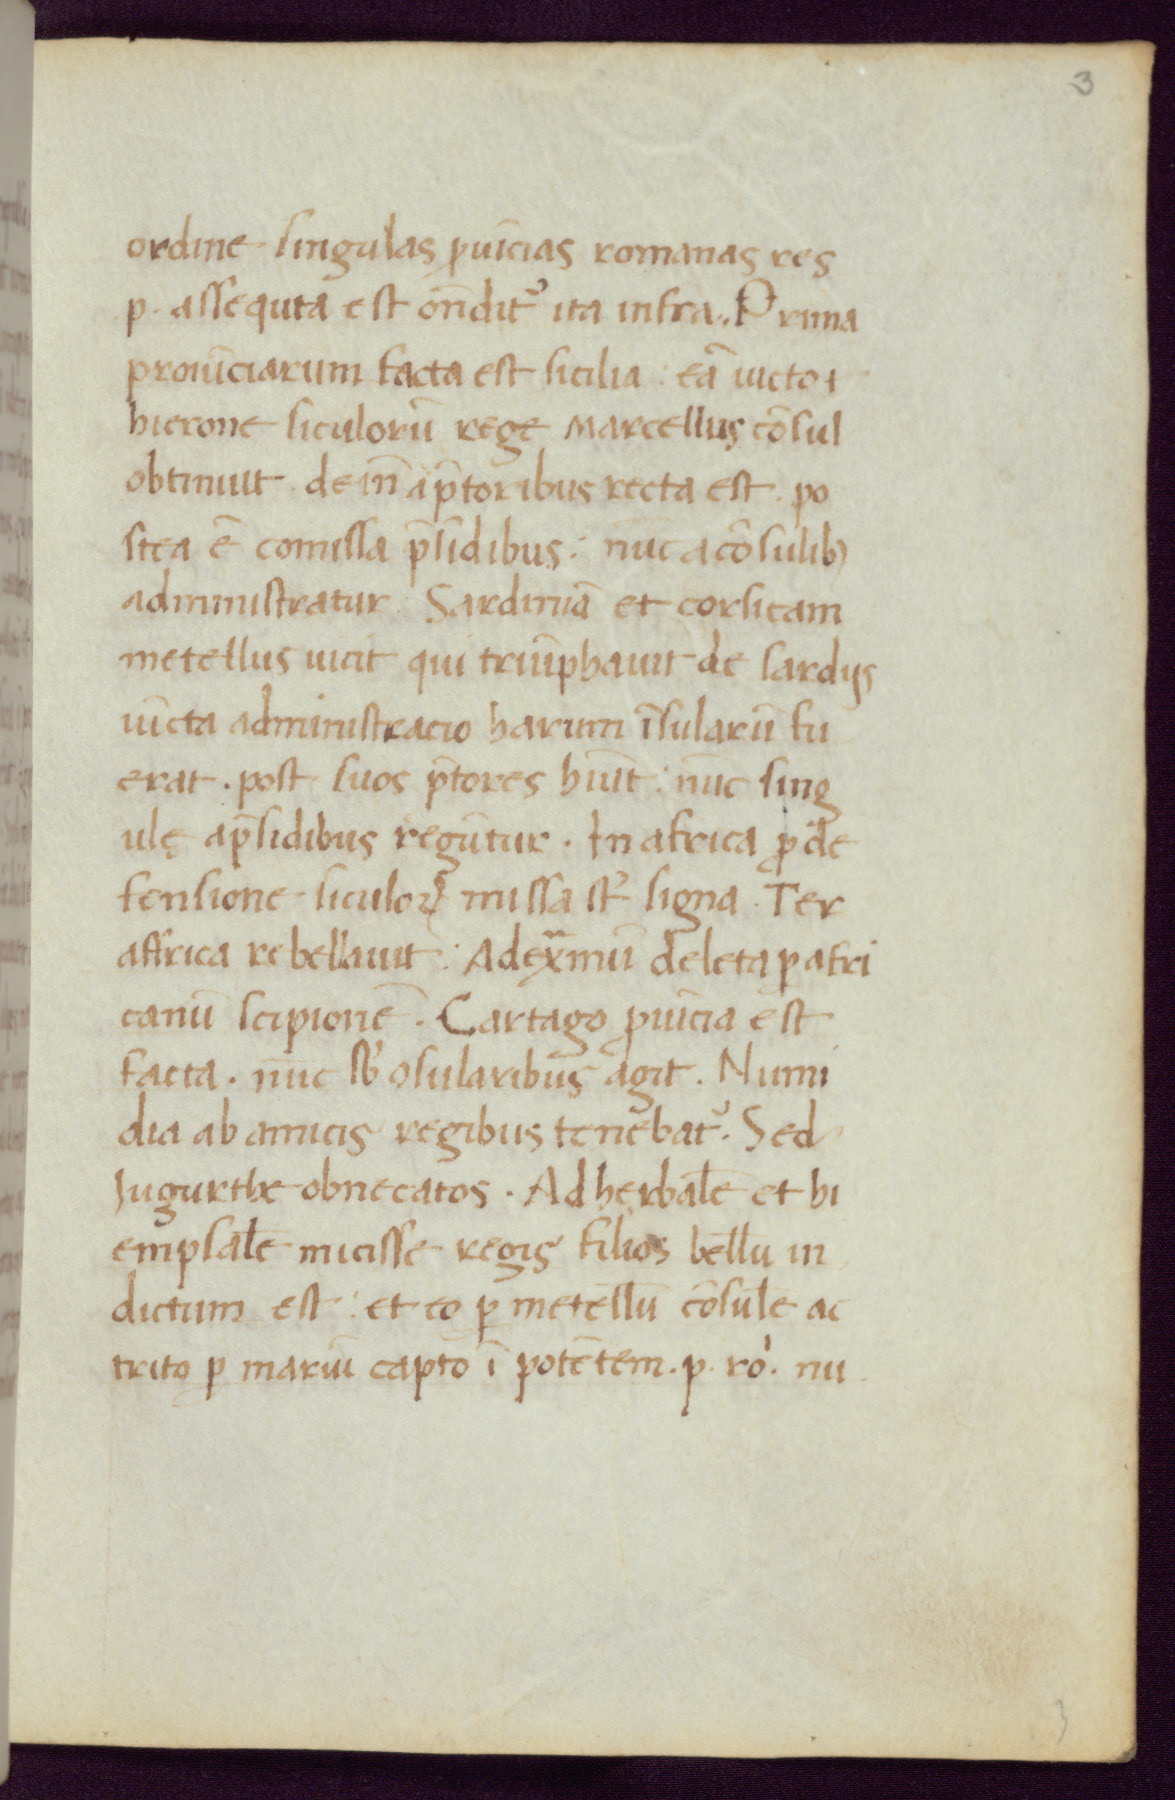 3
ordine singulas ꝓuīcias romanas res
p. assequta est on̄dit᷑ ita infra. Prima
prouīciarum facta est sicilia: eā uicto
hierone siculorū rege Marcellus cōsul
obtinuit. dein̄ a p̄toribus recta est. po
stea ē comissa p̄sidibus: nūc a cōsulibꝫ
administratur. Sardiniā et corsicam
metellus uicit qui triūphauit de sardijs
uīcta administracio harum īsularū fu
erat. post suos p̄tores huīt: nūc sing
ulę a p̄sidibus regūtur. In africa ꝓ de
fensione siculoꝝ missa st̄ signa. Ter
affrica rebellauit: Ad exm̄ū deleta ꝑ afri
canū scipionē. Cartago ꝓuīcia est
facta. nūc sb̄ osularibus agit. Numi
dia ab amicis regibus tenebat᷑. Sed
Jugurthe ob necatos. Adherbalē et hi
empsalē micisse regis filios bellū in
dictum est: et eo ꝑ metellū cōsulē ac
trito ꝑ mariū capto ī potētem. p. ro. nu
3